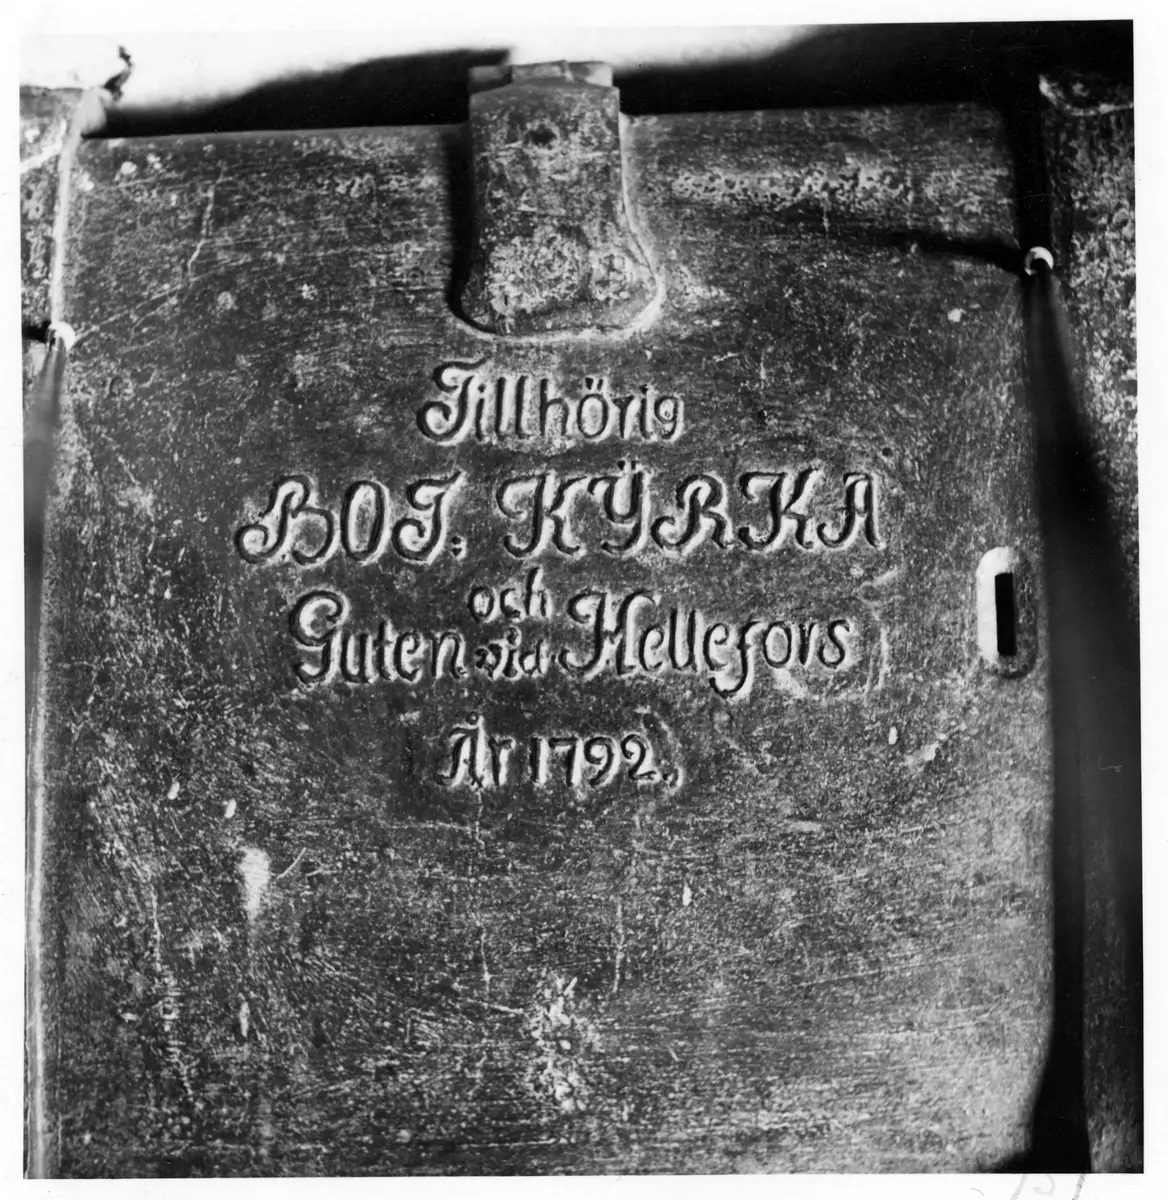 Tillhörig
BOT; KŸRKA
och
Guten vid Hellefors
År 1792.